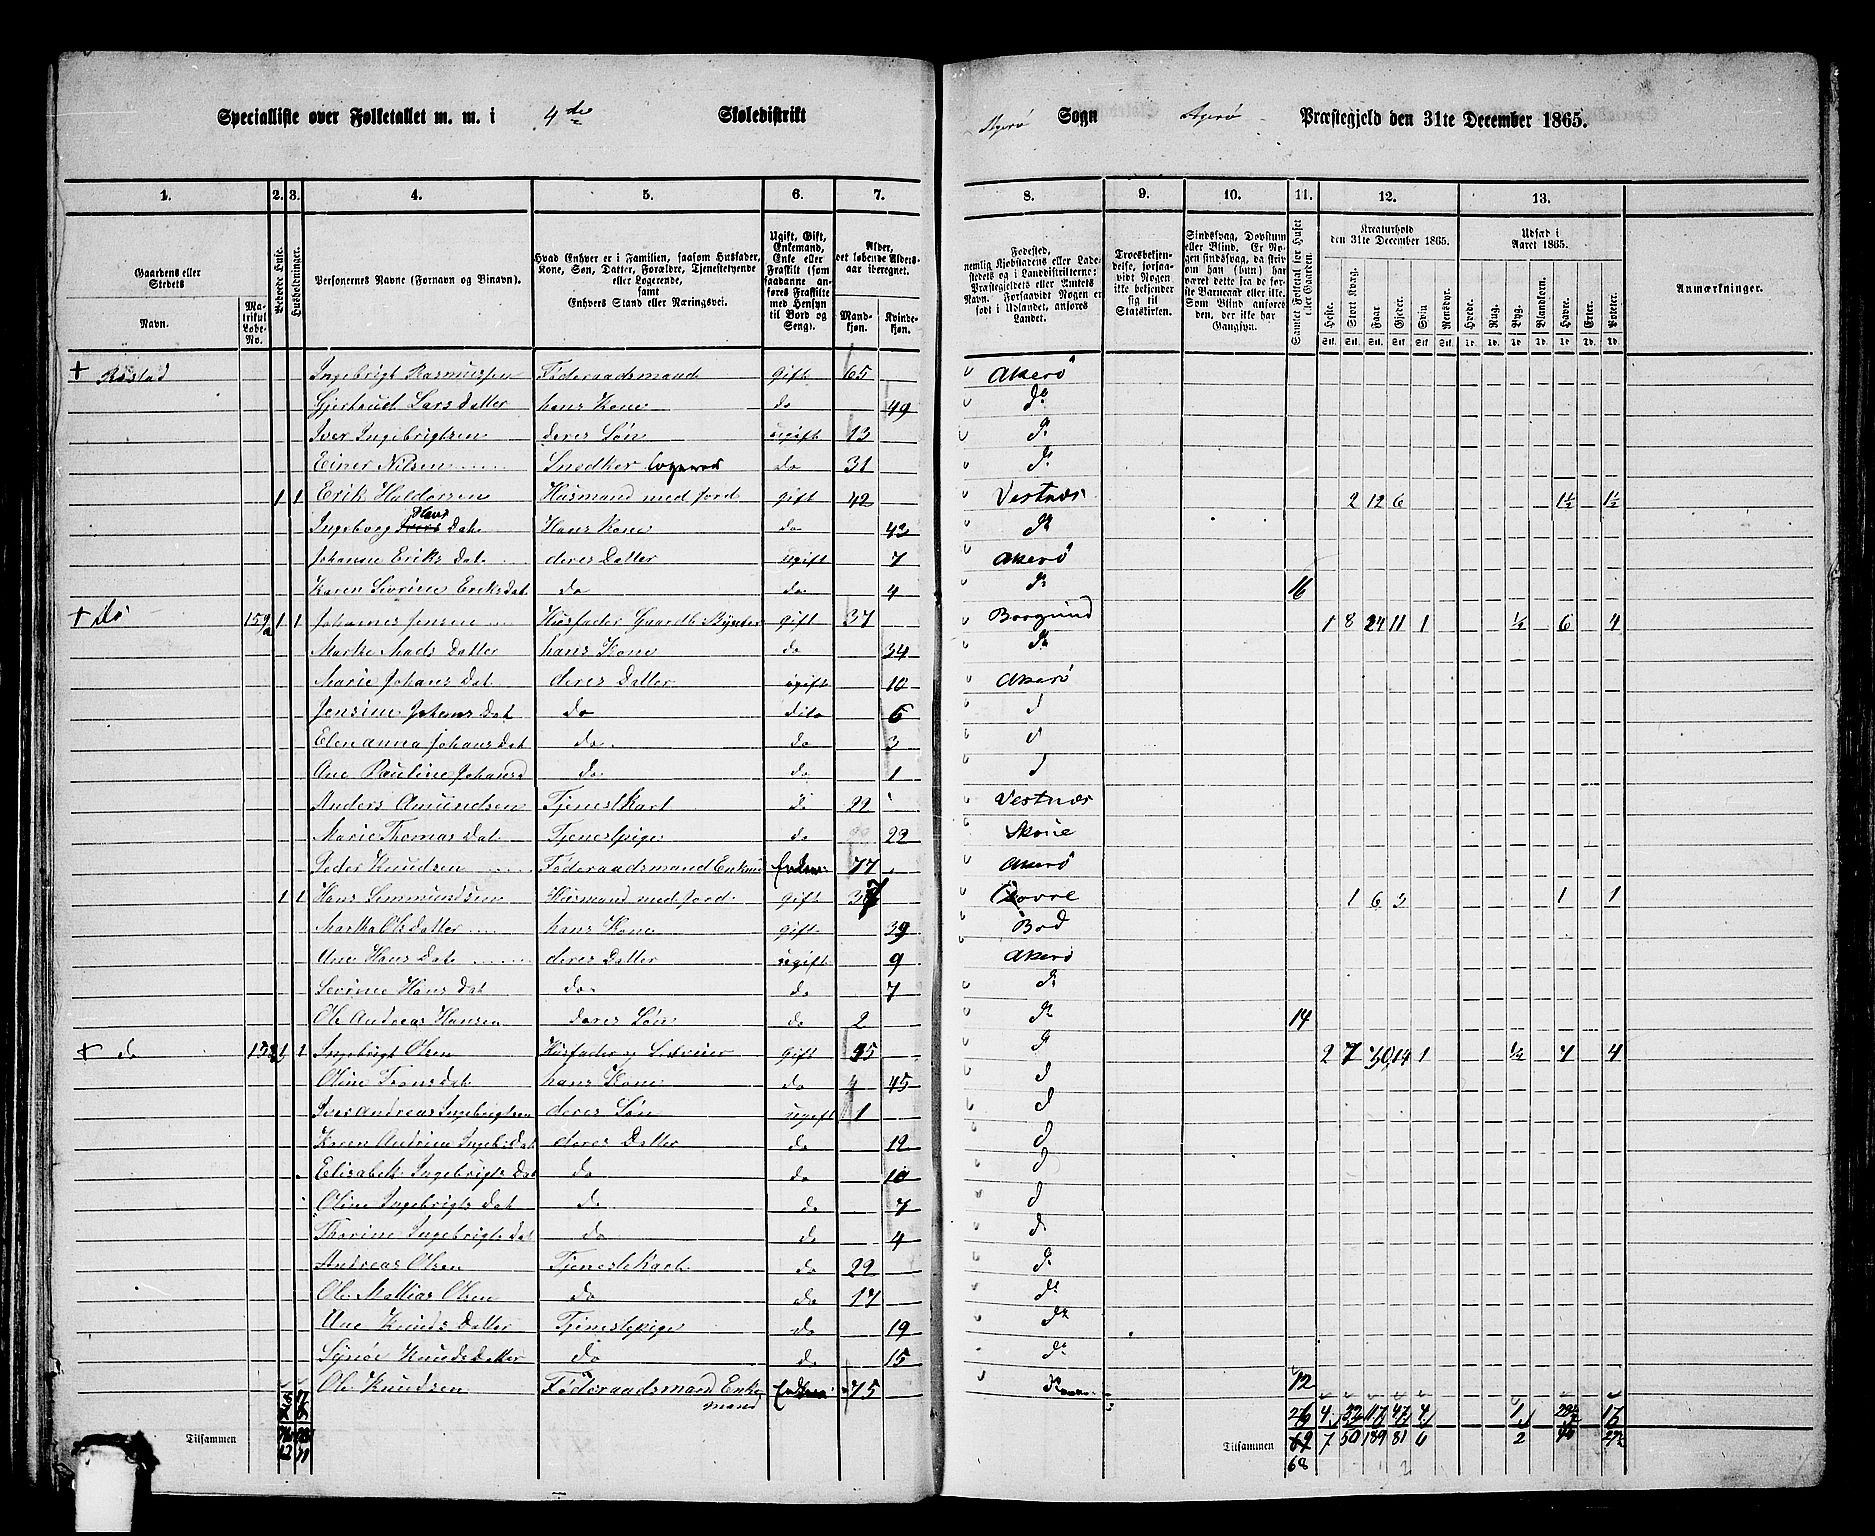 Specialliste over Folketallet m. m. i 4de Skoledistrikt
Agerø Sogn Agerø Præstegjeld den 31te December 1865.
1. 2. 3. 4. 5. 6. 7. 8. 9. 10. 11. 12. 13.
Gaardens eller Stedets
Navn.
Matrikul Løbe-No.
Beboede Huse.
Husholdninger.
Personernes Navne (Fornavn og Binavn).
Hvad Enhver er i Familien, saasom Husfader, Kone, Søn, Datter, Forældre, Tjenestetyende eller Logerende, samt Enhvers Stand eller Næringsvei.
Ugift, Gift, Enkemand, Enke eller Fraskilt (som saadanne anføres Fraskilte med Hensyn til Bord og Seng).
Alder, det løbende Aldersaar iberegnet.
Mandkjøn. Kvindekjøn.
Fødested, nemlig Kjøbstadens eller Ladestedets og i Landdistrikterne: Præstegjeldets eller Amtets Navn. Forsaavidt Nogen er født i Udlandet, anføres Landet.
Troesbekjendelse, forsaavidt Nogen ikke bekjender sig til Statskirken.
Sindssvag, Døvstum eller Blind. Er Nogen sindssvag, da skrives om han (hun) har været det fra de første Barneaar eller ikke. Som Blind anføres den, der ikke har Gangsyn.
Samlet Folketal for Huset eller Gaarden.
Kreaturhold den 31te December 1865.
Heste. Stort Kvæg. Faar. Gjeder. Sviin. Rensdyr.
Udsæd i Aaret 1865.
Hvede. Rug. Byg. Blandkorn. Havre. Erter. Poteter.
Anmærkninger.
Røstad Ingebrigt Rasmussen Føderaadsmand gift 65 Akerø
Gjertrud Lars Datter hans Kone do 49 do
Iver Ingebrigtsen deres Søn ugift 13 do
Einer Nilsen Snedker logerend do 31 do
1 1 Erik Haldorsen Husmand med Jord gift 42 Vestnæs 2 12 6 1½ 1½
Ingeborg Dat Hans Kone do 43 do
Johanne Eriks Dat deres Datter ugift 7 Akerø
Karen Sivrine Eriksdat do do 4 do 16
do 159a 1 1 Johannes Jensen Husfader Gaardb. gift 37 Borgund 1 8 24 11 1 ½ 6 4
Marte Mads Datter hans Kone do 34 do
Marie Johans Dat deres Datter ugift 10 Akerø
Jensine Johans Dat do dito 6 d
Elen anna Johans Dat do do 3 d
Ane Pauline Johansd do do 1 d
Anders Amundsen Tjenestkarl d 22 Vestnæs
Marie Thomas Dat Tjenestpige do 22
Peder Knudsen Føderaadsmand Enkm Enkem 77 Akerø
1 1 Hans Semmundsen Husmand med Jord gift 37 1 6 3 1 1
Martha Ols Datter hans Kone gift 39 Bod
Ane Hans Dat deres Datter ugift 9 Akerø
Sevrine Hans Dat do do 7 do
Ole Andreas Hansen deres Søn do 2 do 14
do 1 1 Ingebrigt Olsen Husfader og Selveier gift 35 d 2 7 30 14 1 ¼ 7 4
Oline Tronsdat hans Kone do 45 d
Iver Andreas Ingebrigtsen deres Søn ugift 1 d
Karen Andrine Ingeb. Dat deres Datter do 12 d
Elisabeth Ingebrigts Dat do do 10 d
Oline Ingebrigts Dat do do 7 d
Thorine Ingebrigts Dat do do 4 d
Andreas Olsen Tjenestekarl do 29 do
Ole Mattias Olsen do do 17 do
Ane Knuds Datter Tjenestepige do 19 do
Synøe Knudsdatter do do 15 do
Ole Knudsen Føderaadsmand Enkemand 75 12
4 32 117 47 4
Tilsammen Tilsammen 69 7 50 189 81 6 2
68